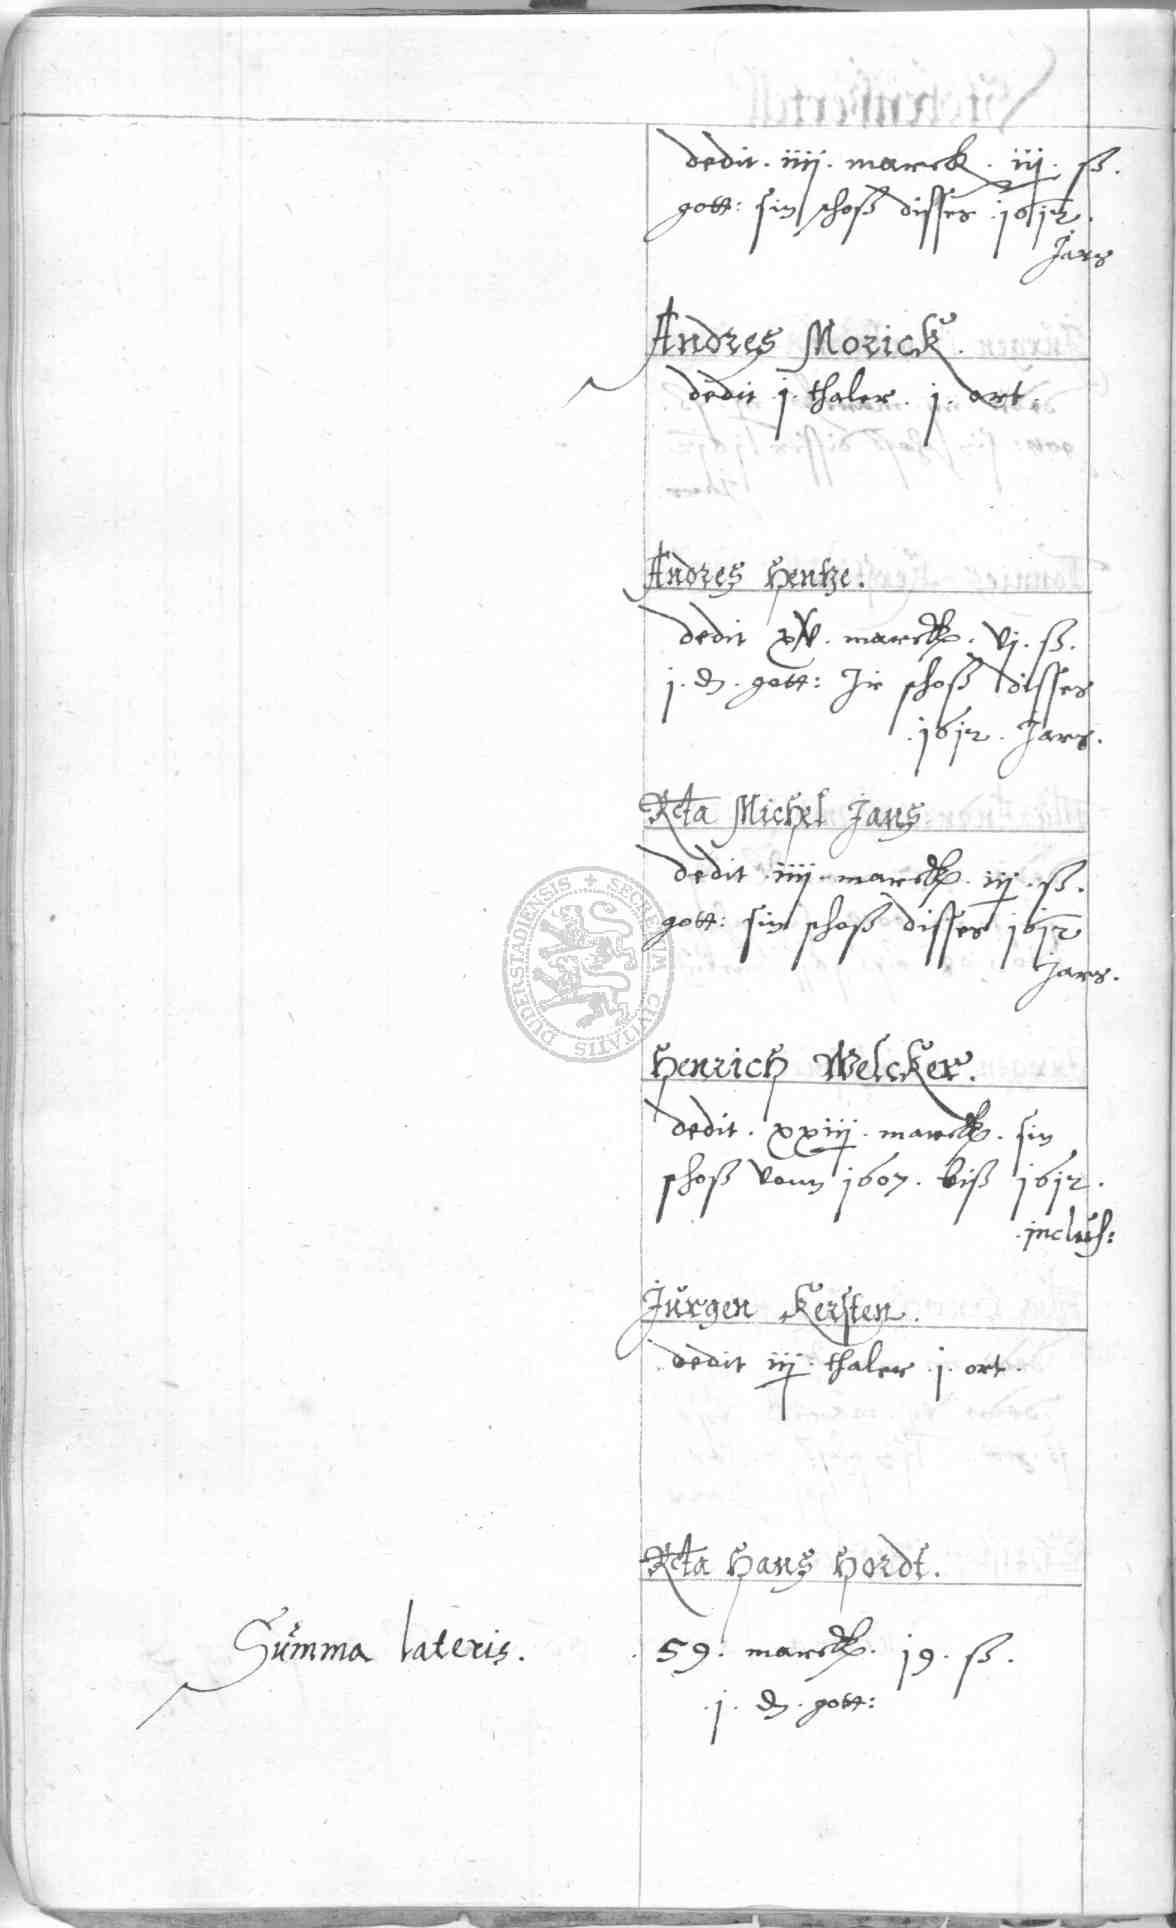 dedit . iiij . marck . iij . ß .
gott: sin schoß disses . 1612 .
Jars
Andres Morick .
dedit j . thaler . j . ort .
Andres Hentze .
dedit xv . marck . vj . ß .
j . d . gott: Ir schoß disses
. 1612 . Jars .
Rcta Michel Jans
dedit . iiij . marck . iij . ß .
gott: sin schoß disses 1612
Jars .
Henrich Welcker .
dedit . xxiij . marck . sin
schoß vonn 1607 . biß 1612 .
. inclus:
Jürgen Kersten .
dedit iij . thaler . j . ort .
Rcta Hans Hordt .
Summa lateris . . 59 . marck . 19 . ß .
. j . d . gott:
SECRETUM CIVITATIS DUDERSTADIENSIS